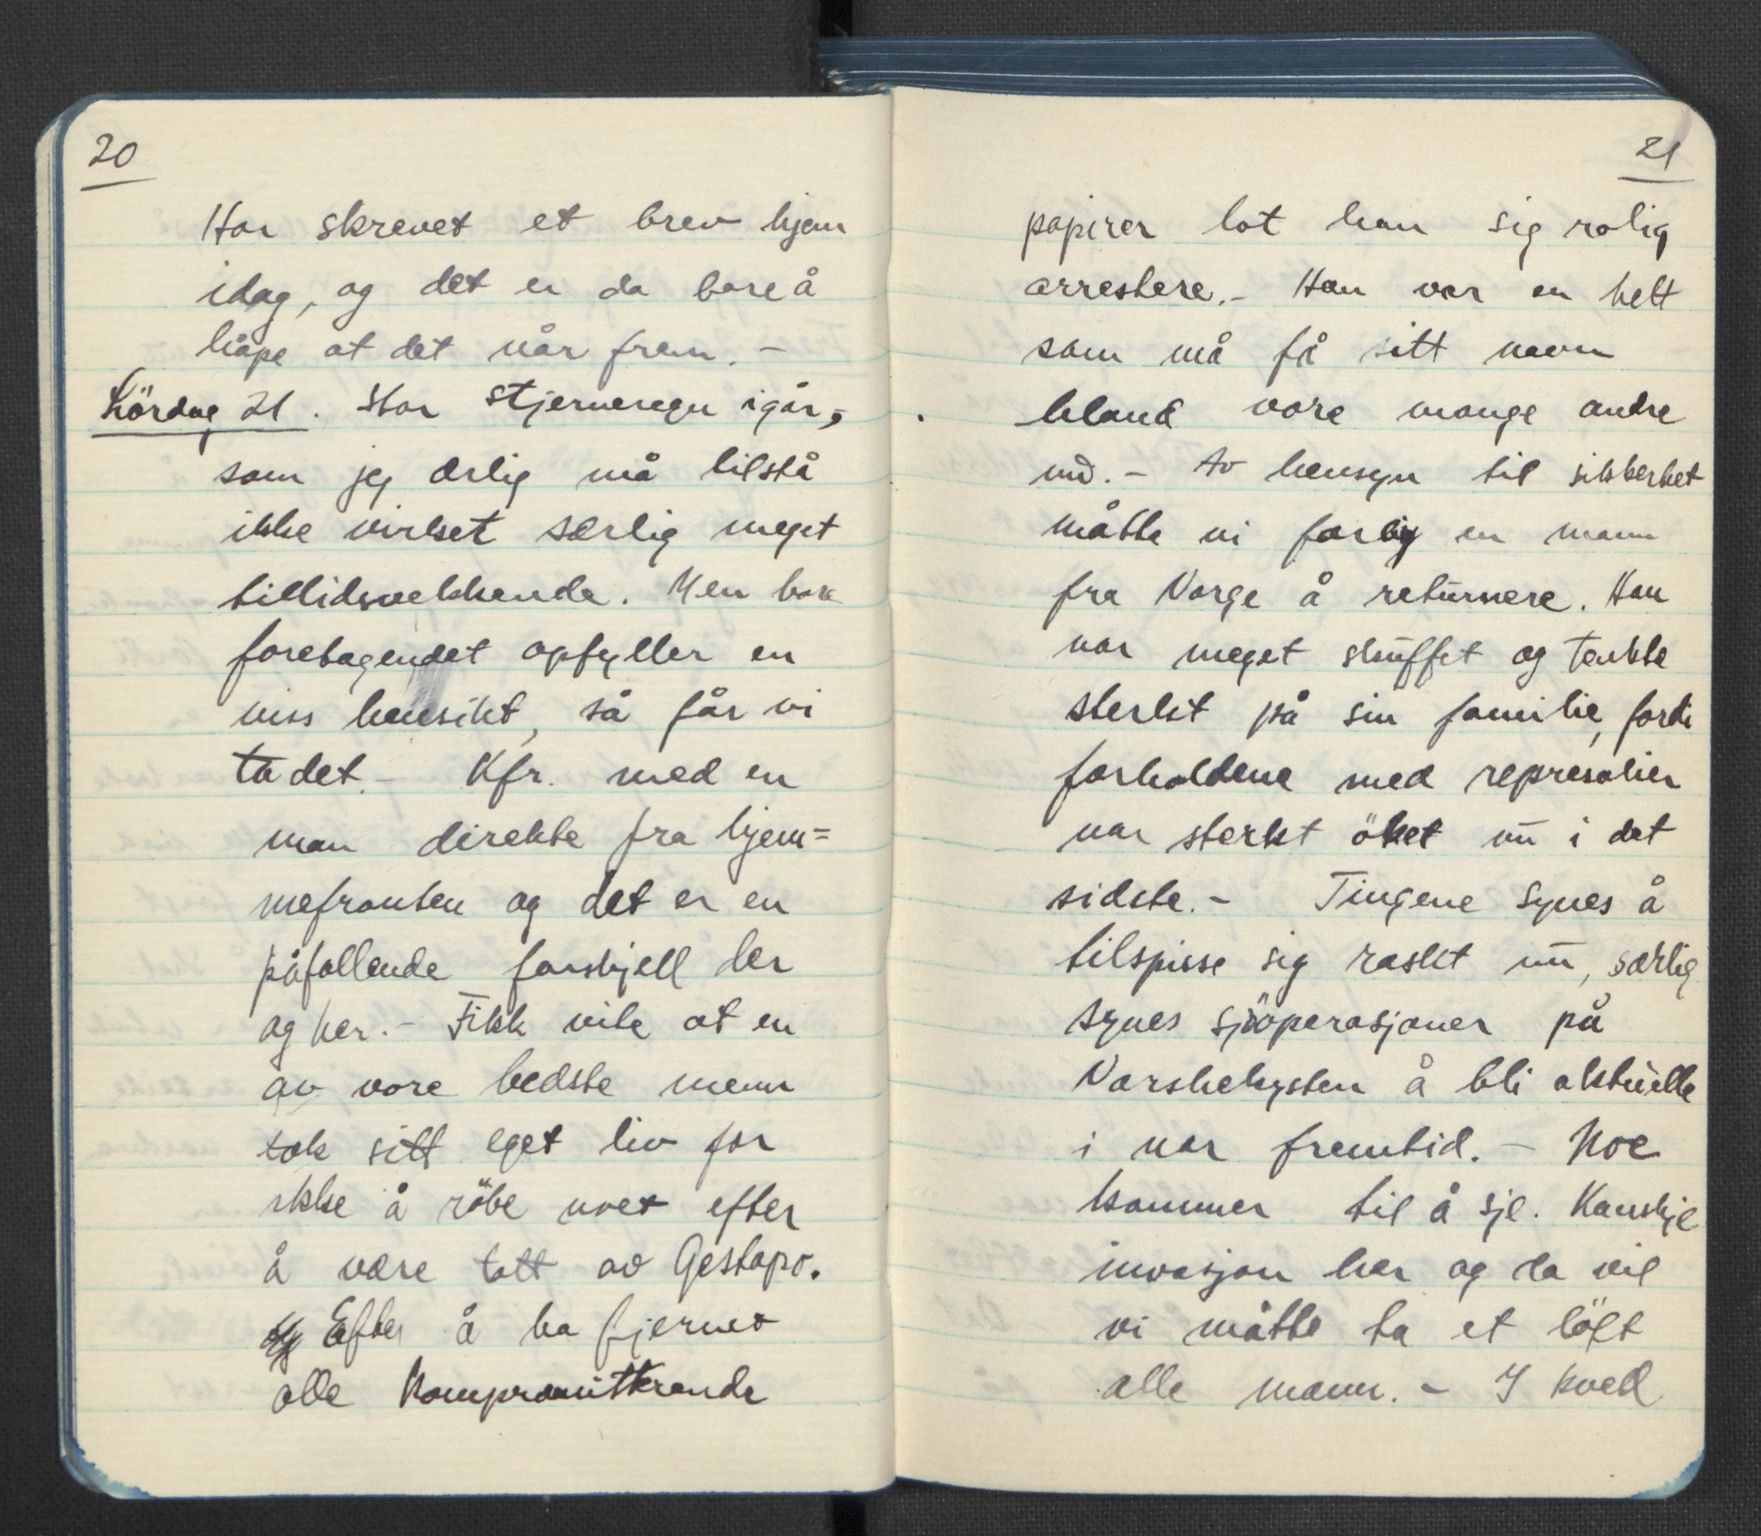 20
Har skrevet et brev hjem
idag, og det er da bare å
håpe at det når frem. –
Lördag 21. Har stjerneregn igår,
som jeg ærlig må tilstå
ikke virket særlig meget
tillidsvekkende. Men bare
foretagendet opfyller en
viss hensikt, så får vi
ta det. – Kfr. med en
man direkte fra hjem=
mefronten og det er en
påfallende forskjell der
og her. – Fikk vite at en
av vore bedste menn
tok sitt eget liv for
ikke å röbe noet efter
å være tatt av Gestapo.
Efter å ha fjernet
alle kompromitterende
21
papirer lot han sig rolig
arrestere. – Han var en helt
som må få sitt navn
bland vore mange andre
nu. – Av hensyn til sikkerhet
måtte vi forby en mann
fra Norge å returnere. Han
var meget skuffet og tenkte
sterkt på sin familie, fordi
forholdene med represalier
var sterkt öket nu i det
sidste. – Tingene synes å
tilspisse sig raskt nu, særlig
synes sjöoperasjoner på
Norskekysten å bli aktuelle
i nær fremtid. – Noe
kommer til å sje. Kanskje
invasjon her og da vil
vi måtte ta et löft
alle mann. – I kveld